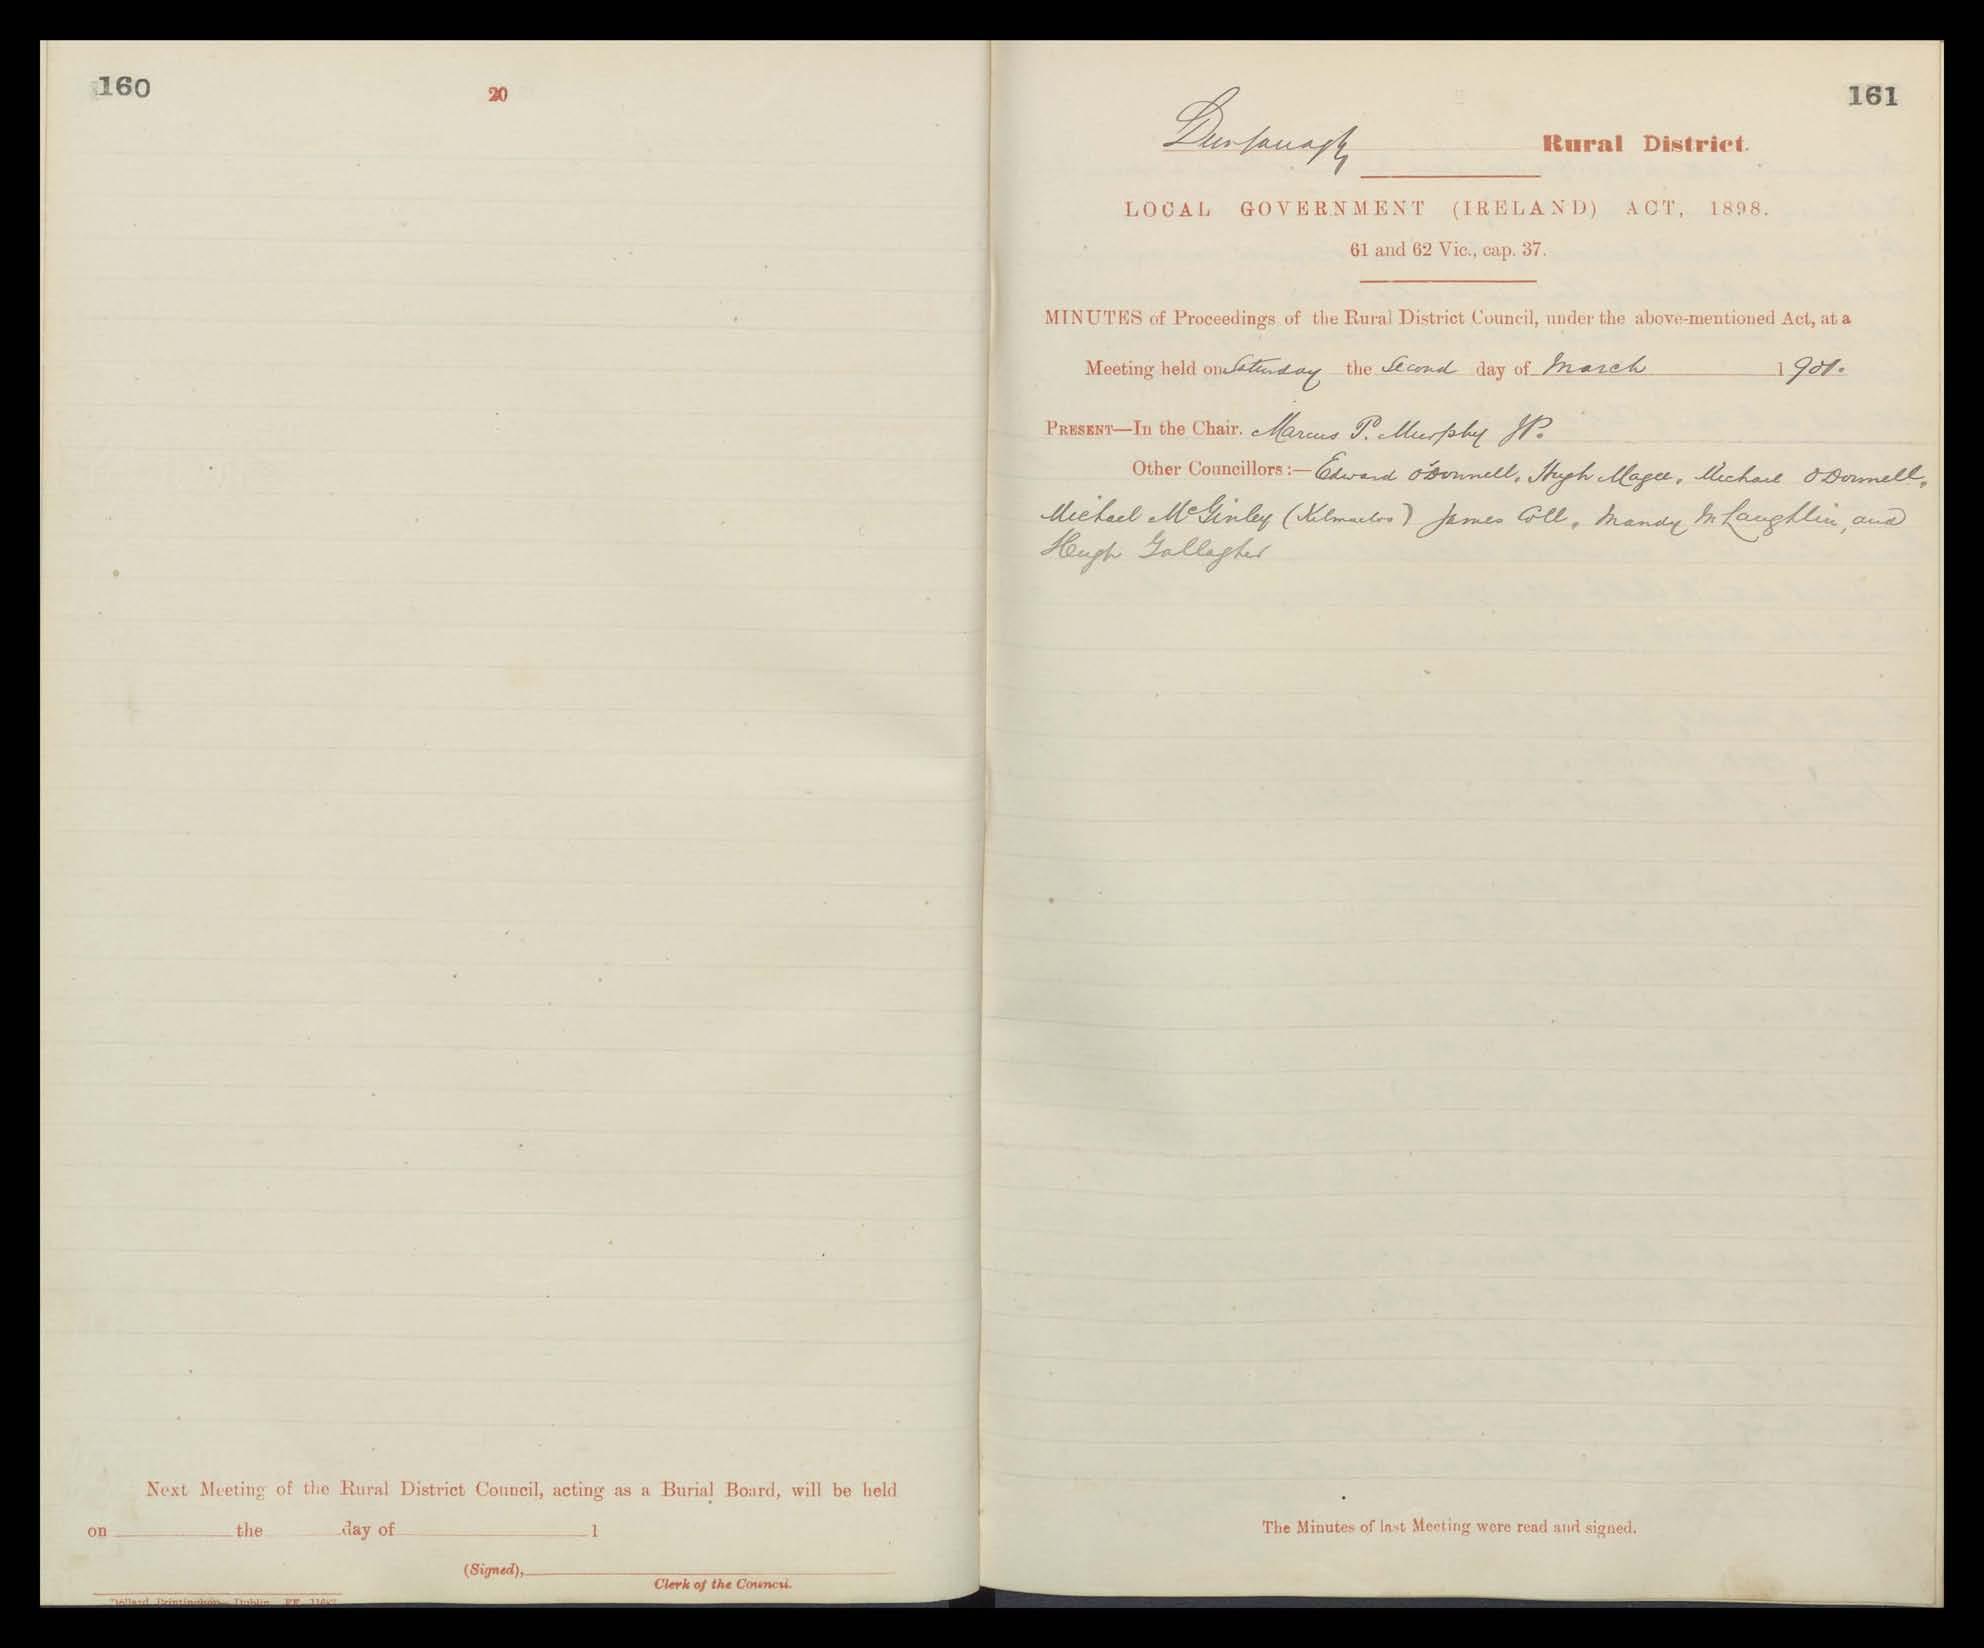 160
20
Next Meeting of the Rural District Council, acting as a Burial Board, will be held
on the day of 1
(Signed),
Clerk of the Council.
Dollard, Printinghouse, Dublin.
161
Dunfanaghy Rural District.
LOCAL GOVERNMENT (IRELAND) ACT, 1898.
61 and 62 Vic., cap. 37.
MINUTES of Proceedings of the Rural District Council, under the above-mentioned Act, at a
Meeting held on Saturday the Second day of March 1901.
PRESENT—In the Chair. Marcus P. Murphy JP.
Other Councillors:—Edward O'Donnell, Hugh Magee, Michael O Donnell,
Michael McGinley ( ) James Coll, Mandy McLaughlin, and
Hugh Gallagher
The Minutes of last Meeting were read and signed.